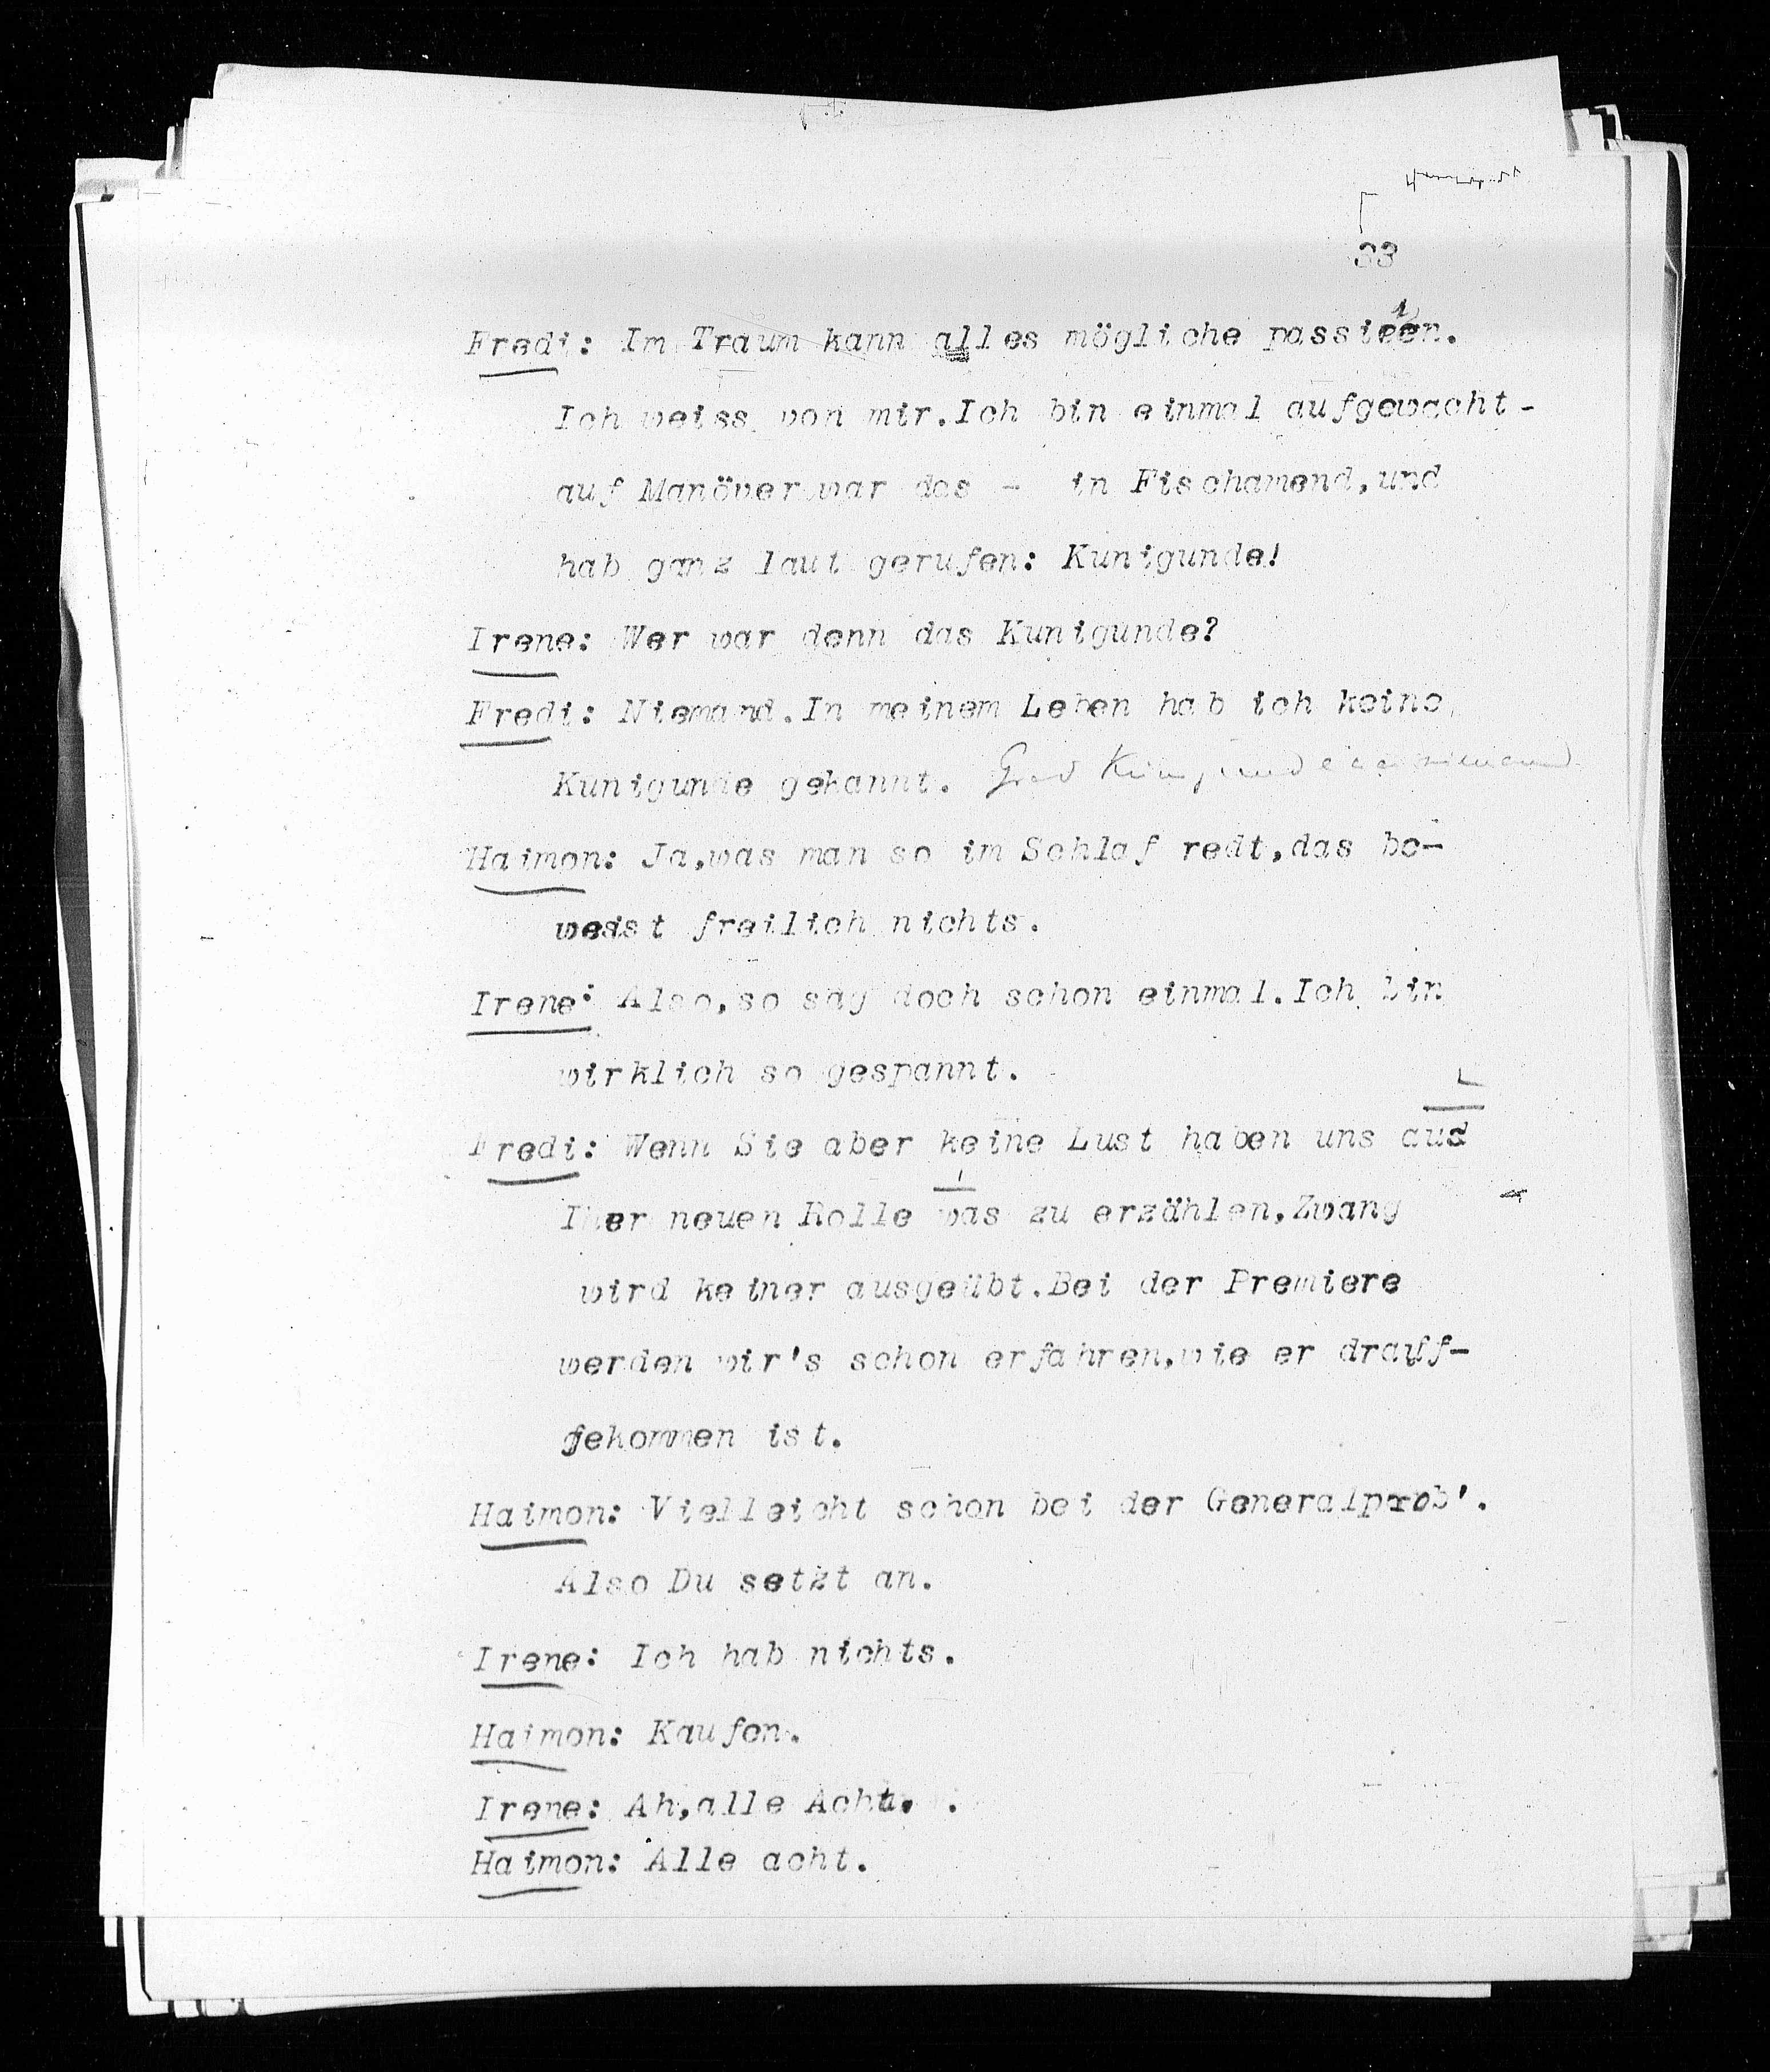 33
Fredi: Im Traum kann alles mögliche passieern.
Ich weiss von mir.Ich bin einmal aufgewacht-
auf Manöver war das - in Fischamend,und
hab ganz laut gerufen: Kunigunde!
Irene: Wer war denn das Kunigunde?
Fredi: Niemand.In meinem Leben hab ich keine
Kunigunde gekannt. Grad Kunigunde
Haimon: Ja,was man so im Schlaf redt,das be-
weist freilich nichts.
Irene: Also,so sag doch schon einmal.Ich bin
wirklich so gespannt.
Fredi: Wenn Sie aber keine Lust haben uns aus
Iher neuen Rolle was zu erzählen,Zwang
wird keiner ausgeübt.Bei der Premiere
werden wir's schon erfahren,wie er drauf-
gekommen ist.
Haimon: Vielleicht schon bei der Generalprob'.
Also Du setzt an.
Irene: Ich hab nichts.
Haimon: Kaufen.
Irene: Ah,alle Acht. .
Haimon: Alle acht.